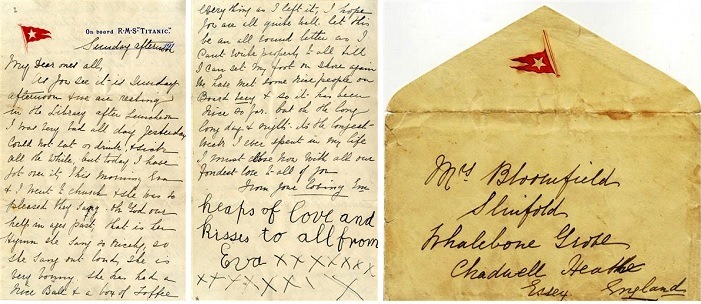 On board R·M·S·"TITANIC."
Sunday afternoon
My Dear ones all,
As you see it is Sunday
afternoon & we are resting
in the Library after Luncheon
I was very bad all day yesterday
Could not eat or drink, & sick
all the while, but today I have
got over it. This morning Eva
& I went to church & she was so
pleased they sang Oh God our
help in ages past, that is her
Hymn she sang so nicely, so
she sang out loud, she is
very bonny. she has had a
nice Ball & a box of Toffie
everything as I left it, I hope
you are all quite well let this
be an all round letter as I
Can't write properly to all till
I can set my foot on shore again
We have met some nice people on
Board & so it has been
nice so far. but oh the long
long day & nights. its the longest
Week I ever spent in my life
I must close now With all our
fondest love to all of you
From your loving Em
heaps of love and
kisses to all from
Eva x x x x x x x
x x x x x x x x
Mrs Bloomfield
Slinfold
Whalebone Grove
Chadwell Heathe
Essex England